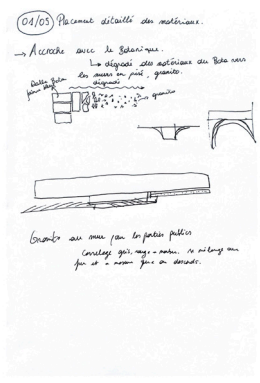 01/05 Placement détaillé des matériaux.
→ Accroche avec le Botanique.
↳ dégradé des matériaux du Bota vers
les murs en pisé, granito.
Dalle Bota
dégradé
→ granito
au mur pour les parties publics
Carrelage gris, rouge
fur et à mesure que on descends.